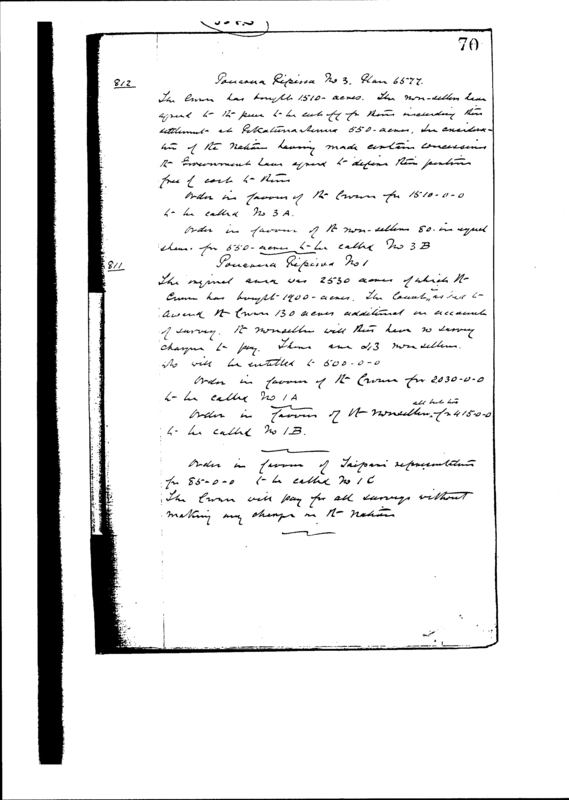 70
812 No 3. Plan 6577.
The Crown has bought 1510 - acres. The non-sellers have
agreed to the piece to be cut off for them including their
settlement at 550 - acres. In considera-
tion of the Natives having made certain concessions
the Government have agreed to define their portion
free of cost to them
Order in favour of the Crown for 1510-0-0
to be called No 3A.
Order in favour of the non-sellers 80. in equal
shares for 550 - acres to be called No 3B
811 No 1
The original area was 2530 acres of which the
Crown has bought 1900 - acres. The Court is to
award the Crown 130 acres additional on account
of survey. The nonsellers will thus have no survey
charges to pay. There are 43 non sellers.
who will be entitled to 500-0-0
Order in favour of the Crown for 2030-0-0
to be called No 1A
all but
Order in favour of the nonsellers for 415-0-0
to be called No 1B.
Order in favour of representatives
for 85-0-0 to be called No 1C
The Crown will pay for all surveys without
making any charge on the Natives